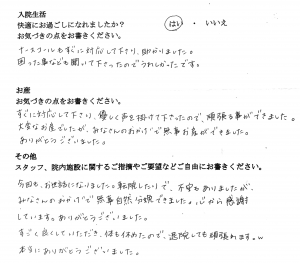 入院生活
快適にお過ごしになれましたか？ はい ・ いいえ
お気づきの点をお書きください。
ナースコールもすぐに対応して下さり、助かりました。
困った事なども聞いて下さったのでうれしかったです。
お産
お気づきの点をお書きください。
すぐに対応して下さり、優しく声を掛けて下さったので、頑張る事ができました。
大変なお産でしたが、みなさんのおかげで無事お産ができました。
ありがとうございました。
その他
スタッフ、院内施設に関するご指摘やご要望などご自由にお書きください。
今回も、お世話になりました。転院したりで、不安もありましたが、
みなさんのおかげで無事自然分娩できました。心から感謝
しています。ありがとうございます。
すごく良くしていただき、体も休めたので、退院しても頑張れます。
本当にありがとうございました。